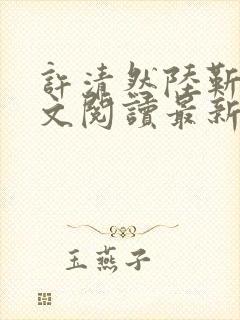 許清然陸靳
文閱讀最新
玉燕子